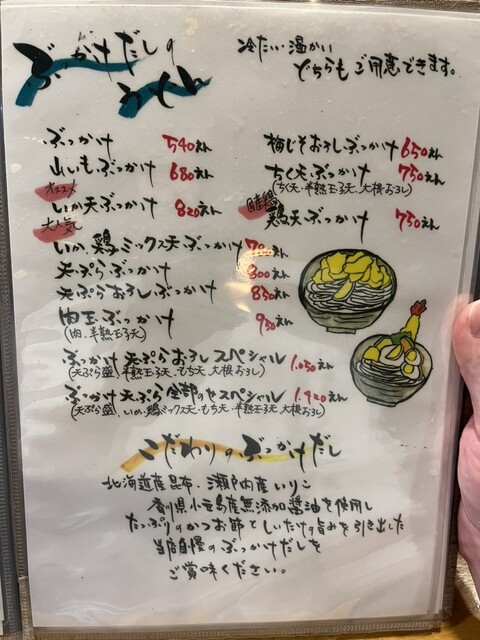 ぶっかけだしの
うどん
冷たい・温かい
どちらもご用意できます。
ぶっかけ 540えん
山いもぶっかけ 680えん
オススメ
いか天ぶっかけ 820えん
大人気
いか、鶏ミックス天ぶっかけ
天ぷらぶっかけ 800えん
天ぷらおろしぶっかけ 850えん
肉玉ぶっかけ 950えん
(肉、半熟玉子天)
梅じそおろしぶっかけ 650えん
ちく天ぶっかけ 750えん
(ちく天・半熟玉子天、大根おろし)
鶏天ぶっかけ 750えん
ぶっかけ 天ぷらおろしスペシャル 1,050えん
(天ぷら盛、半熟玉子天、もち天、大根おろし)
ぶっかけ 天ぷら全部のせスペシャル 1,920えん
(天ぷら盛、いか、鶏ミックス天・もち天・半熟玉子天、大根おろし)
こだわりのぶっかけだし
北海道産昆布、瀬戸内産いりこ
香川県小豆島産無添加醤油を使用し
たっぷりのかつお節としいたけの旨みを引き出した
当店自慢のぶっかけだしを
ご賞味ください。